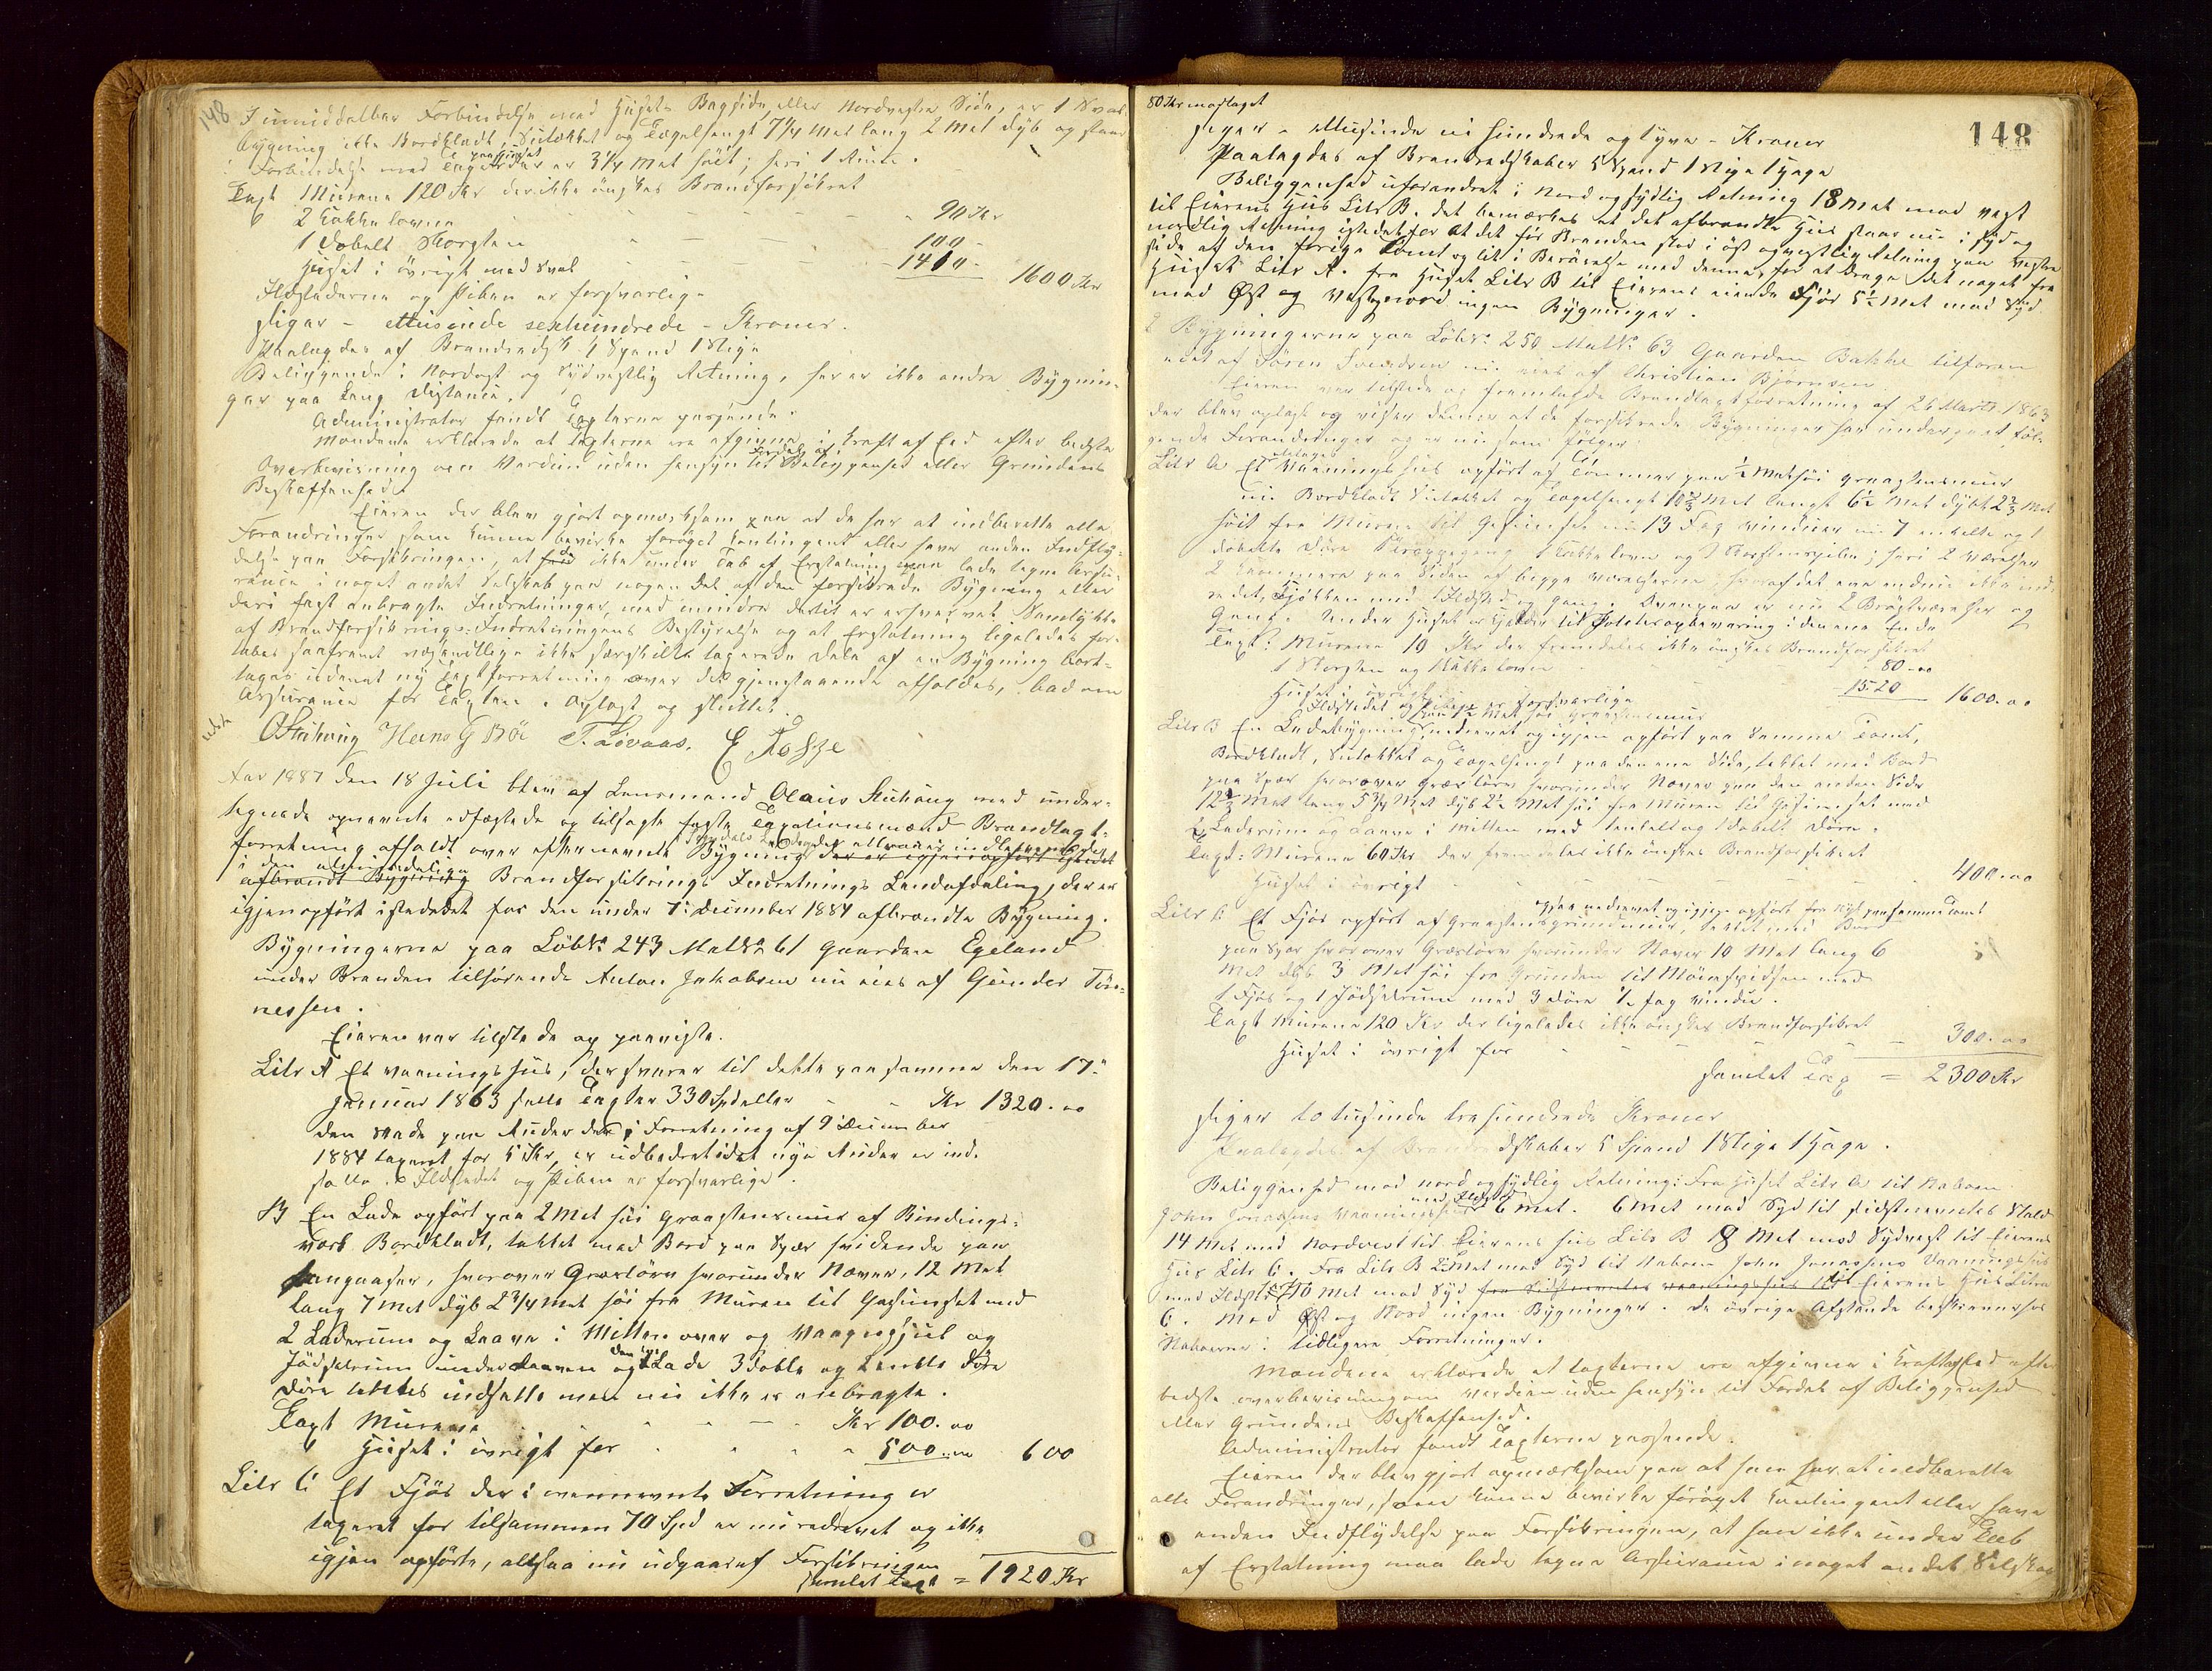 148
I umiddelbar Forbindelse med Husets Bagside, eller Nordvestre Side, er 1 Sval
bygning ikke Bordklædt, Sutækket og Tegelhængt 7 1/4 Met lang 2 Met dyb og staar
i Forbindelse med Taget der er 3 1/4 Met höit; heri 1 Rum.
Taxt Murene 120 Kr der ikke önskes Brandforsikret
2 Kakkelovne - - - 90 Kr
1 dobelt Skorsten - - - 100 -
Huset i övrigt med Sval - - - 1410 - 1600 Kr
Ildstederne og Piben er forsvarlige
siger - ettusinde sexhundrede - Kroner.
Paalagdes af Brandredsk. 4 Spand 1 Stige
Beliggende i Nordost og Sydvestlig Retning, her er ikke andre Bygnin-
ger paa lang Distance.
Administrator fandt Taxterne passende.
Mændene erklærede at Taxterne ere afgivne i Kraft af Eed efter bedste
Overbevisning om Værdien uden Hensyn til Fordel af Beliggenhed eller Grundens
Beskaffenhed.
Eieren der blev gjort opmærksom paa at de har at indberette alle
Forandringer som kunne bevirke foröget Kontingent eller have anden Indfly-
delse paa Forsikringen, at de ikke under Tab af Erstatning maa lade tegne Assu-
rance i noget andet Selskab paa nogen Del af den forsikrede Bygning eller
deri fast anbragte Indretninger, med mindre dertil er erhvervet Samtykke
af Brandforsikrings-Indretningens Bestyrelse og at Erstatning ligeledes for-
tabes saafremt væsentlige ikke særskilte taxerede Dele af en Bygning bort-
tages uden at ny Taxtforretning over det gjenstaaende afholdes, bad om
Assurance for Taxten. Oplæst og sluttet.
OStuhaug Hans G Böe T. Lövaas. E Rosze
Aar 1887 den 18 Juli blev af Lensmand Olaus Stuhaug med under-
tegnede opnævnte edfæstede og tilsagte faste Taxationsmænd Brandtaxt-
forretning afholdt over efternævnte Bygning der er igjen opfört istedet
afbrændt Bygning i den almindelige Brandforsikrings Indretnings Landafdeling, der er
igjenopfört istedetet for den under 7de December 1884 afbrændte Bygning.
Bygningerne paa Löb No 243 Mat No 61 Gaarden Egeland
under Branden tilhörende Anton Jakobsen nu eies af Gunder Tön-
nessen.
Eieren var tilstede og paaviste.
Litr A Et Vaaningshus, der svarer til dette paa samme den 17de
Januar 1863 satte Taxter 330 Spd eller - - Kr 1320.00
den Skade paa Ruder der i Forretning af 9 December
1884 taxeret for 5 Kr, er udbedret idet nye Ruder er ind-
satte. Ildstedet og Piben er forsvarlige.
B En Lade opfört paa 2 Met höi Graastensmur af Bindings-
værk Bordklædt, tækket med Bord paa Spær hvilende paa
Langaaser, hvorover Græstörv hvorunder Næver, 12 Met
lang 7 Met dyb 2 3/4 Met höi fra Muren til Gesimset med
2 Laderum og Laave i Midten over og Vaagnskjul og
Jödselrum under Laaven og den ene Lade 3 doble og 1 enkelt Döre
Döre lettes indsatte men nu ikke er anbragte.
Taxt Murene - - - Kr 100.00
Huset i övrigt for - - - 500.00 600
Litr C Et Fjös der i ovennævnte Forretning er
taxeret for tilsammen 70 Spd er nu nedrevet og ikke
igjen opförte, altsaa nu udgaar af Forsikringen
samlet Taxt = 1920 Kr
80 Kr modtaget
148
siger - ettusinde ni hundrede og tyve - Kroner
Paalagdes af Brandredskaber 5 Spand 1 Stige 1 Hage
Beliggenhed uforandret i Nord og Sydlig Retning 18 Met mod Vest
til Eierens Hus Litr B. det bemærkes at det afbrændte Hus staar nu i Syd og
nordlig Retning istedetfor at det för Branden stod i öst og vestlig Retning paa Vestre
side af den forige Tomt og lit i Berörelse med denne, for at drage det noget fra
Huset Litr A. fra Huset Litr B til Eierens eiende Fjös 5 1/2 Met mod Syd
mod Öst og Vest og nord ingen Bygninger.
Bygningerne paa Löb No 250 Mat No 63 Gaarden Bakke tilforen
eiet af Sören Svendsen nu eies af Christian Björnsen.
Eieren var tilstede og fremlagde Brandtaxtforretning af 26 Marts 1863
der blev oplæst og viser denne at de forsikrede Bygninger har undergaaet föl-
gende Forandringer og er nu som fölger
Litr A Et Vaaningshus opfört af Tömmer paa 1/2 Met höi Graastensmur
nu Bordklædt Sutækket og Tegelhængt 10 2/3 Met langt 6 1/2 Met dybt 2 2/3 Met
höit fra Muren til Gesimset nu 13 Fag Vinduer nu 7 enkelte og 1
dobelte Döre Teroppegang 1 Kakkelovn og 1 Skorstenspibe; heri 2 Værelser
2 Kammere paa Siden af begge Værelserne, hvoraf det ene endnu ikke ind-
redet, Kjökken med 1 Ildsted og Gang. Ovenpaa er nu 2 Bröstværelser og
Gang. Under Huset er Kjelder til Poteteropbevaring i den ene Ende
Taxt: Murene 10 Kr der fremdeles ikke önskes Brandforsikret
1 Skorsten og Kakkelovn - - 80.00
Huset i övrigt - - 1520 - 1600.00
Ildstedet og Piben er forsvarlige
Litr B En Ladebygning nedrevet og igjen opfört paa Samme Tomt,
Bordklædt, Sutækket og Tegelhængt paa den ene Side, tækket med Bord
paa Spær hvorover Græstörv hvorunder Næver paa den anden Side
12 2/3 Met lang 5 3/4 Met dyb 2 1/2 Met höi fra Muren til Gesimset med
2 Laderum og Laave i Midten med 1 enkelt og 1 dobelt Döre.
Taxt: Murene 60 Kr der fremdeles ikke önskes Brandforsikret
Huset i övrigt - - - 400.00
Litr C Et Fjös opfört af Graastens grundmur, tækket med Bord
igjen nedrevet og igjen opfört fra nyt paa samme Tomt
paa Spær hvorover Græstörv hvorunder Næver 10 Met lang 6
Met dyb 3 Met höi fra Grunden til Möinspidsen med
1 Fjös og 1 Jödselrum med 3 Döre 1/2 Fag Vindue.
Taxt Murene 120 Kr der ligeledes ikke önskes Brandforsikret
Huset i övrigt for - - - 300.00
samlet Tax = 2300 Kr
siger totusinde trehundrede Kroner
Paalagdes af Brandredskaber 5 Spand 1 Stige 1 Hage.
Beliggenhed mod nord og sydlig Retning: Fra Huset Litr A til Naboen
John Jonassens Vaaningshus med Ildsted 6 Met. 6 Met mod Syd til sidstnævntes Stald
14 Met mod Nordvest til Eierens Hus Litr B 8 Met mod Sydvest til Eierens
Hus Litr C. Fra Litr B Met mod Syd til Naboen John Jonassens Vaaningshus
med Ildsted 10 Met mod Syd fra Sidstnævntes Vaaningshus til Eierens Hus Litr
C. Mod Öst og Nord ingen Bygninger. De övrige Afstande beskrevne hos
Naboerne i tidligere Forretninger.
Mændene erklærede at taxterne ere afgivne i Kraft af Eed efter
bedste overbevisning om Værdien uden Hensyn til Fordel af Beliggenhed
eller Grundens Beskaffenhed.
Administrator fandt Taxterne passende.
Eieren der blev gjort opmærksom paa at han har at indberette
alle Forandringer, som kunne bevirke foröget Kontingent eller have
anden Indflydelse paa Forsikringen, at han ikke under Tab
af Erstatning maa lade tegne Assurance i noget andet Selskab